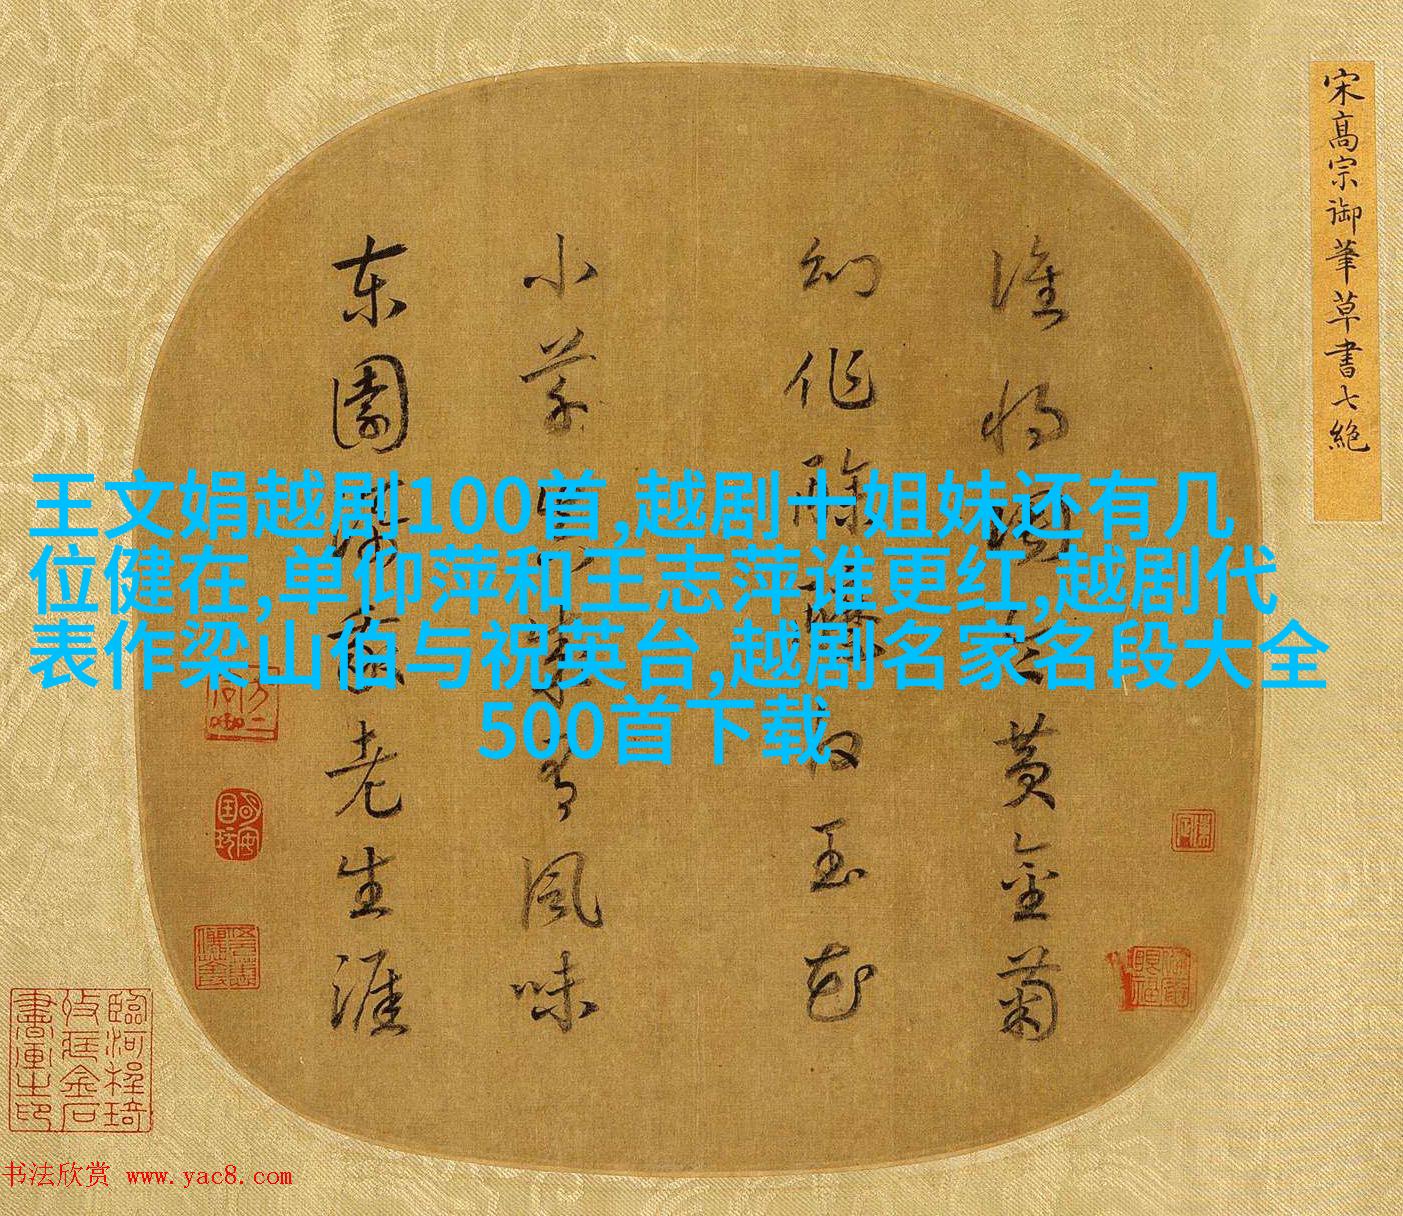 宋高宗御筆草書七絕
誰将黄金菊
幻作玉花
小草風味
东園老生涯
王文娟越剧100首,越剧十姐妹还有几
位健在,单仰萍和王志萍谁更红,越剧代
表作梁山伯与祝英台,越剧名家名段大全
500首下载
书法欣赏 www.yac8.com